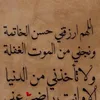 اللهم ارزقني حسن الخاتمة
ونجني من الموت الغفلة
ولا تأخذني من الدنيا
إلا وأنت راض عني